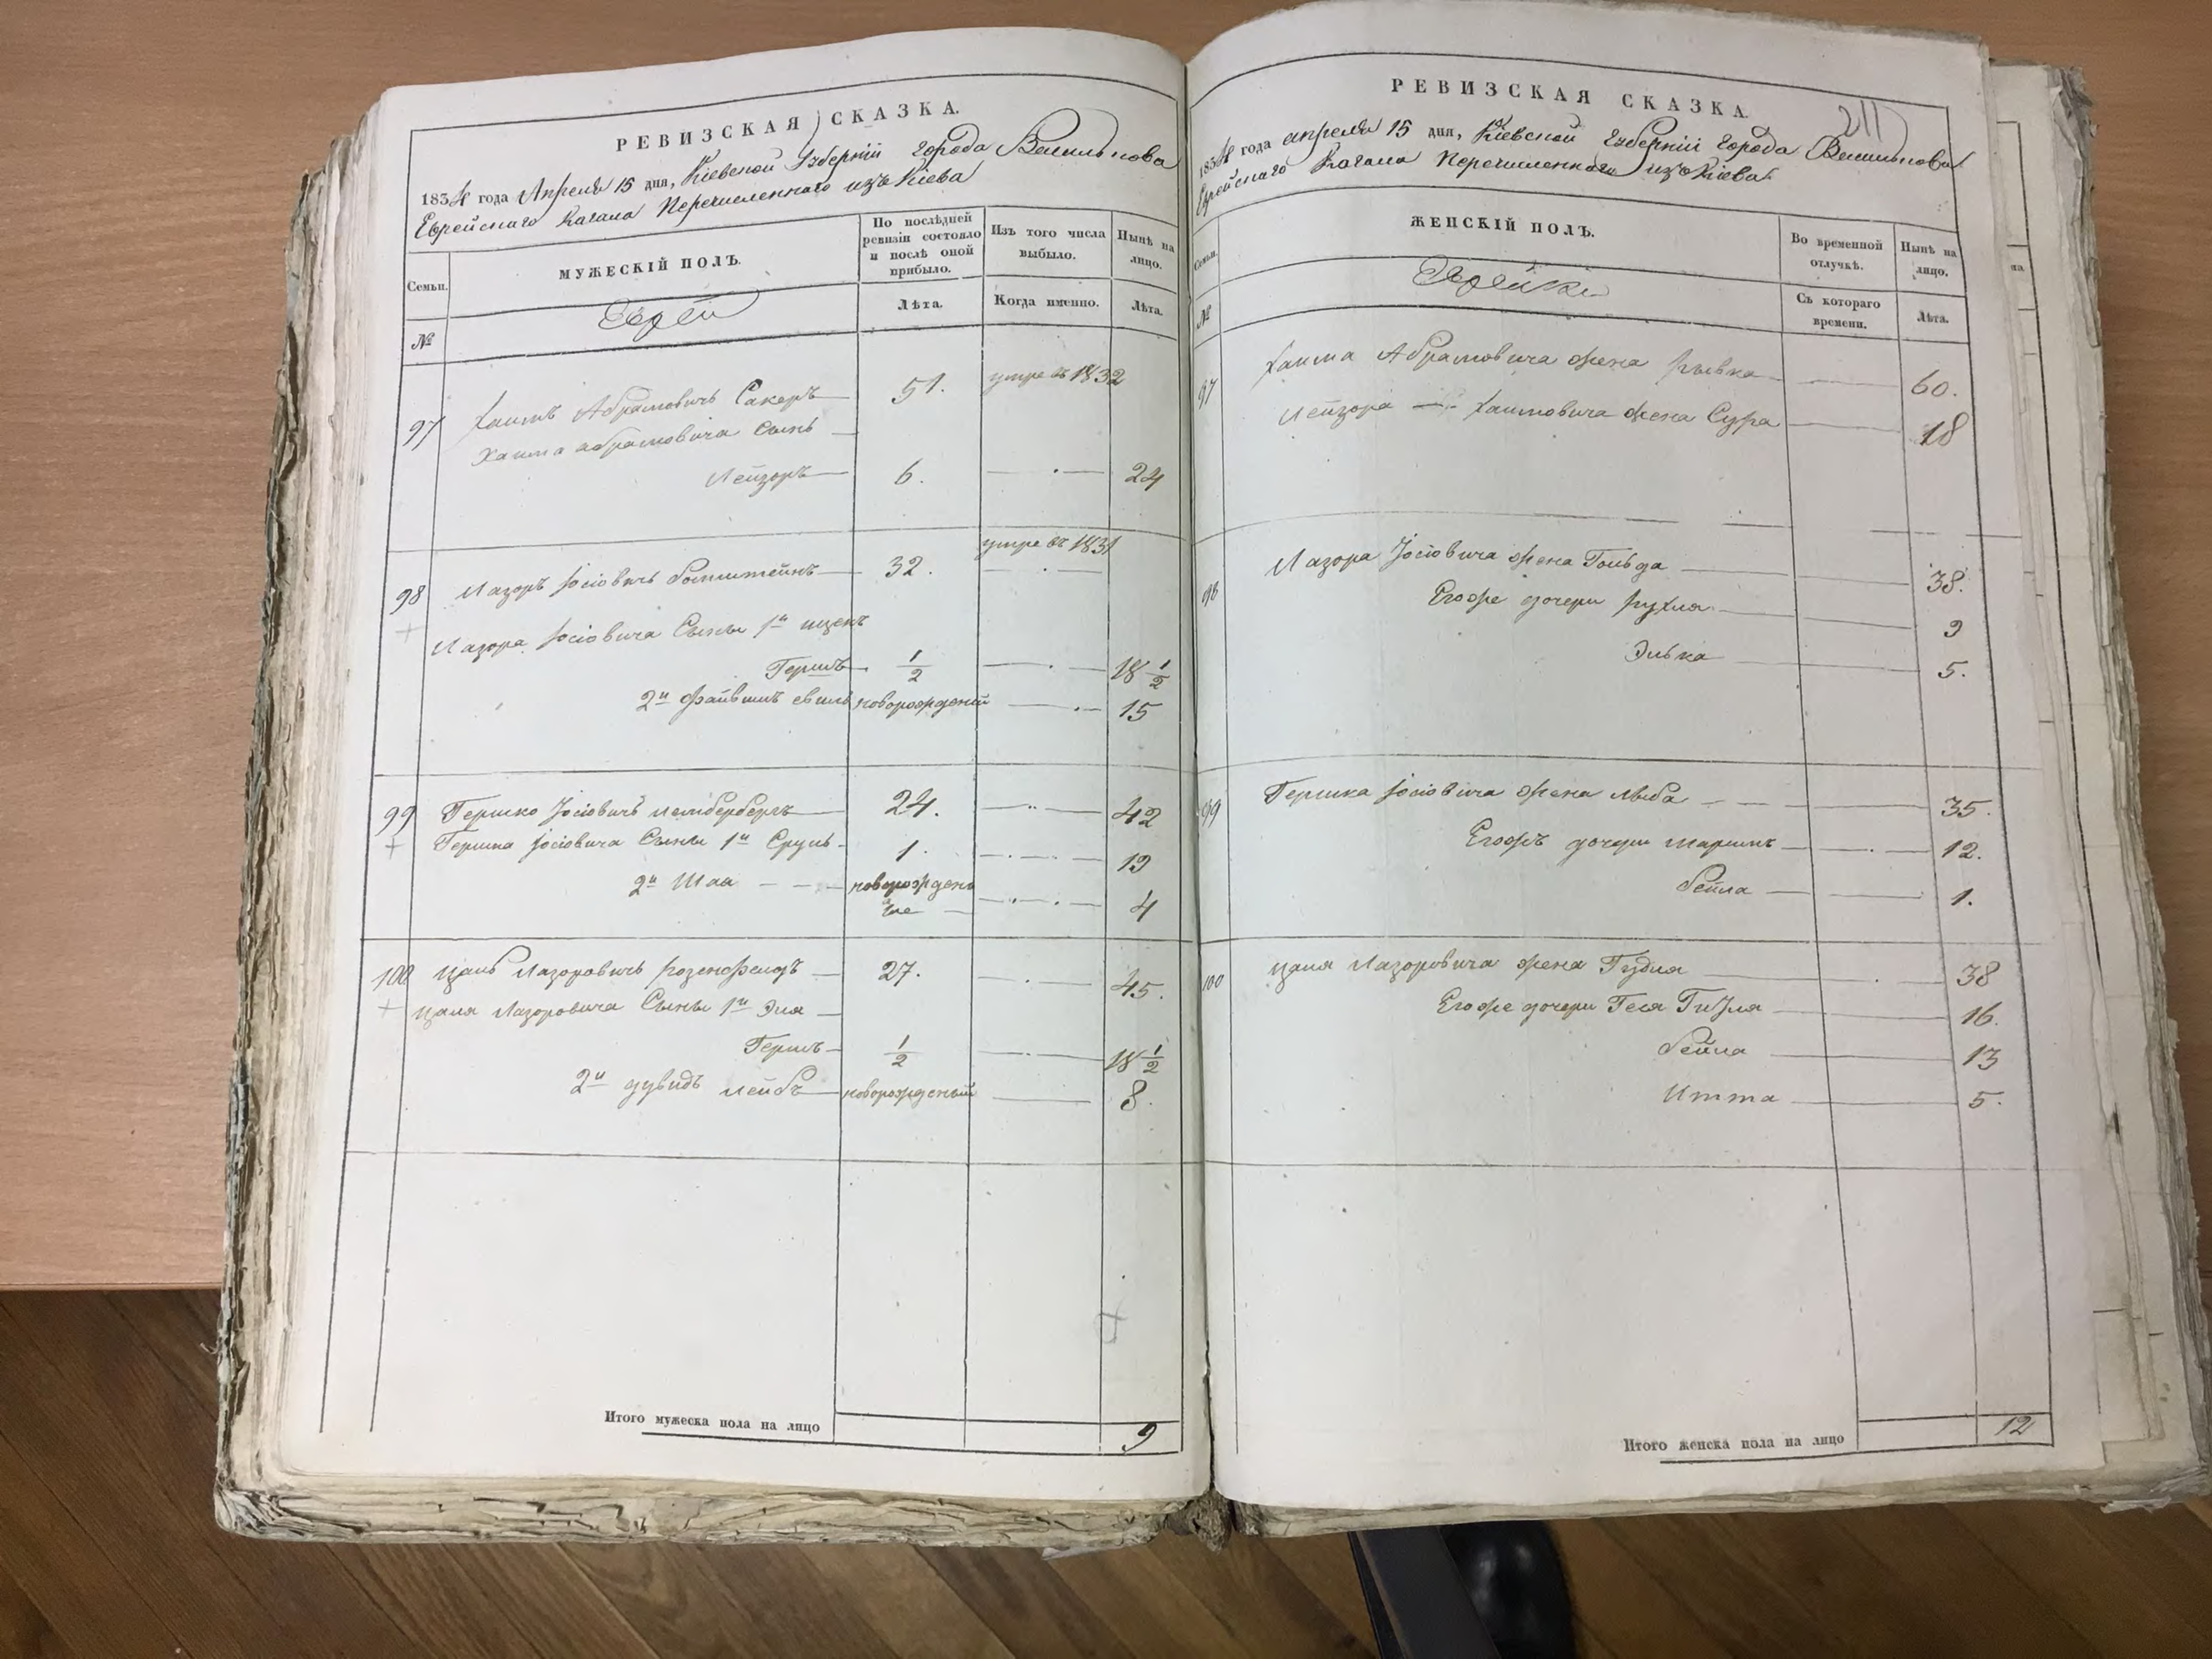 РЕВИЗСКАЯ СКАЗКА.
1834 года Апреля 15 дня, Кіевской Губерніи города Василькова
Еврейскаго Кагала Перечисленнаго изъ Кіева
Семьи.
МУЖЕСКІЙ ПОЛЪ.
По послѣдней ревизіи состояло и послѣ оной прибыло.
Изъ того числа выбыло.
Нынѣ на лицо.
№
Еврей
Лѣта.
Когда именно.
Лѣта.
97 Хаимъ Абрамовичъ Сакеръ 51. умре въ 1832
Хаима абрамовича Сынъ
Лейзоръ 6. 24
98 Лазоръ Іосіовичъ 32. умре въ 1831
Лазора Іосіовича Сыны 1й ицекъ
Гершъ 1/2 18 1/2
2й Файвишъ новорожденій 15
99 Гершко Іосіовичъ 24. 42
Гершка Іосіовича Сыны 1й Сруль 1. 19
2й Шая новорожденые 4
100 Цаль Лазоровичъ розенфелдъ 27. 45.
Цаля Лазоровича Сыны 1й Эля
Гершъ 1/2 18 1/2
2й дувидъ лейбъ новорожденый 8.
Итого мужеска пола на лицо 9
РЕВИЗСКАЯ СКАЗКА.
211
1834 года апреля 15 дня, Кіевской Губерніи города Василькова
Еврейскаго Кагала Перечисленнаго изъ Кіева
Семьи.
ЖЕНСКІЙ ПОЛЪ.
Во временной отлучкѣ.
Нынѣ на лицо.
№
Еврейки
Съ котораго времени.
Лѣта.
97 Хаима Абрамовича жена рывка 60.
Лейзора Хаимовича жена Сура 18
98 Лазора Іосіовича жена Гольда 38.
Егоже дочери рухля 9
Элька 5.
99 Гершка Іосіовича жена 35.
Егожъ дочери 12.
бейла 1.
100 Цаля Лазоровича жена Гудля 38
Егоже дочери Геся Гитля 16.
бейла 13
Итта 5.
Итого женска пола на лицо 12